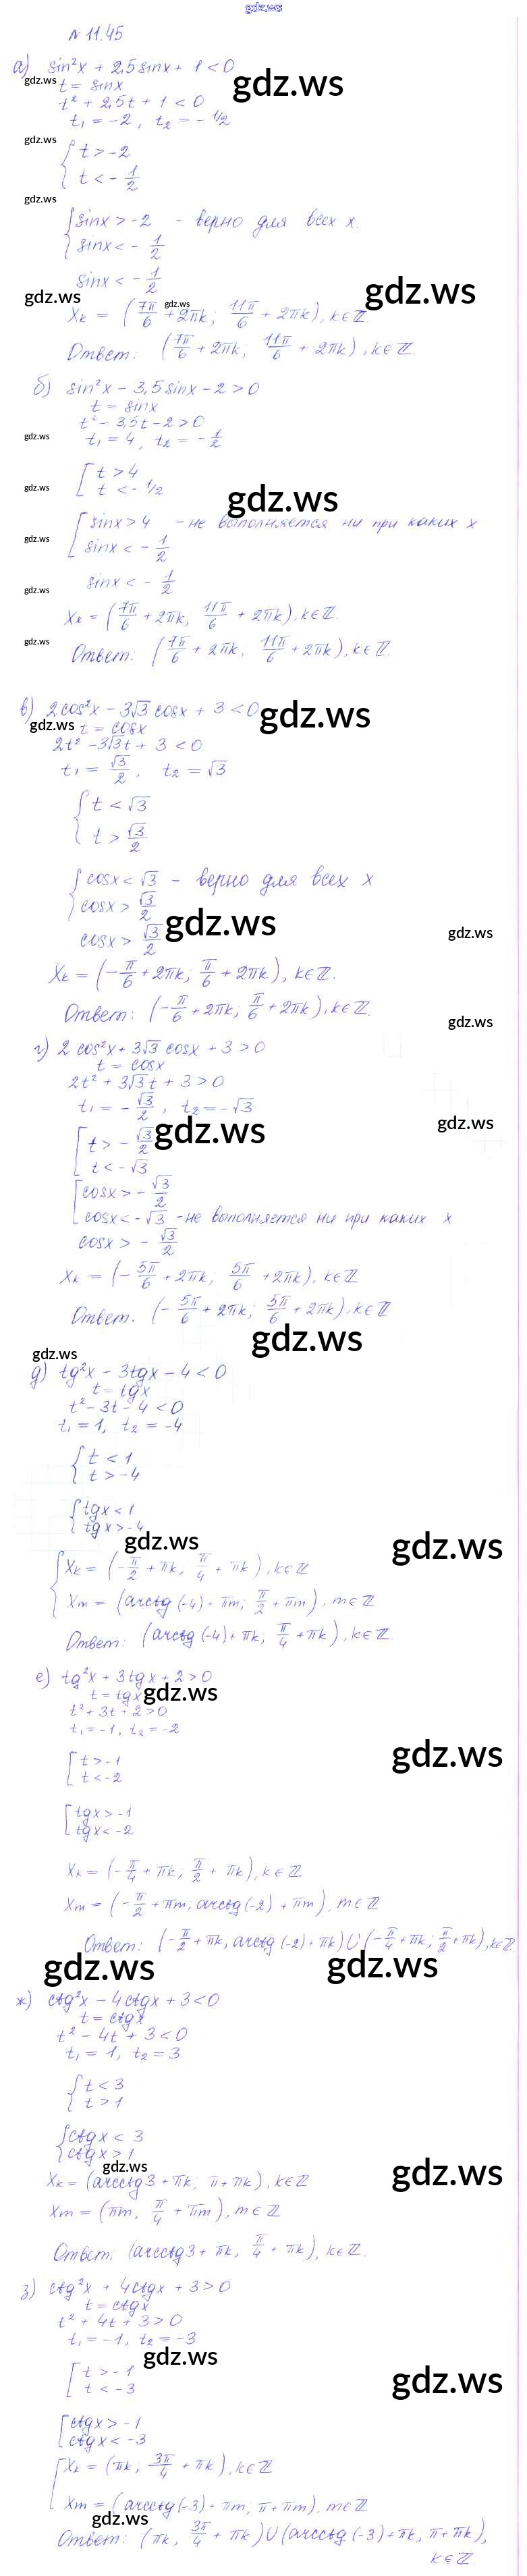 gdz.ws
№ 11.45
а) sin²x + 2,5sinx + 1 < 0
gdz.ws
gdz.ws
t = sinx
t² + 2,5t + 1 < 0
t₁ = -2, t₂ = - 1/2
gdz.ws
{ t > -2
t < - 1/2
gdz.ws
{ sinx > -2 - верно для всех x.
sinx < - 1/2
sinx < - 1/2
gdz.ws
gdz.ws
gdz.ws
Xₖ = (7π/6 + 2πk; 11π/6 + 2πk), k∈ℤ.
Ответ: (7π/6 + 2πk; 11π/6 + 2πk), k∈ℤ.
б) sin²x - 3,5sinx - 2 > 0
t = sinx
t² - 3,5t - 2 > 0
gdz.ws
t₁ = 4, t₂ = - 1/2
[ t > 4
t < - 1/2
gdz.ws
gdz.ws
[ sinx > 4 - не выполняется ни при каких x
sinx < - 1/2
gdz.ws
sinx < - 1/2
gdz.ws
Xₖ = (7π/6 + 2πk, 11π/6 + 2πk), k∈ℤ.
gdz.ws
Ответ: (7π/6 + 2πk, 11π/6 + 2πk), k∈ℤ.
в) 2cos²x - 3√3 cosx + 3 < 0
gdz.ws
gdz.ws
t = cosx
2t² - 3√3t + 3 < 0
t₁ = √3/2, t₂ = √3
{ t < √3
t > √3/2
{ cosx < √3 - верно для всех x
cosx > √3/2
gdz.ws
gdz.ws
cosx > √3/2
Xₖ = (-π/6 + 2πk; π/6 + 2πk), k∈ℤ.
Ответ: (-π/6 + 2πk; π/6 + 2πk), k∈ℤ.
gdz.ws
г) 2cos²x + 3√3 cosx + 3 > 0
t = cosx
2t² + 3√3t + 3 > 0
t₁ = - √3/2, t₂ = -√3
gdz.ws
gdz.ws
[ t > - √3/2
t < - √3
[ cosx > - √3/2
cosx < - √3 - не выполняется ни при каких x
cosx > - √3/2
Xₖ = (- 5π/6 + 2πk; 5π/6 + 2πk), k∈ℤ
Ответ. (- 5π/6 + 2πk; 5π/6 + 2πk), k∈ℤ
gdz.ws
gdz.ws
д) tg²x - 3tgx - 4 < 0
t = tgx
t² - 3t - 4 < 0
t₁ = 1, t₂ = -4
{ t < 1
t > -4
{ tgx < 1
tgx > -4
gdz.ws
gdz.ws
{ Xₖ = (-π/2 + πk, π/4 + πk), k∈ℤ
Xₘ = (arctg(-4) + πm; π/2 + πm), m∈ℤ
Ответ: (arctg(-4) + πk; π/4 + πk), k∈ℤ.
е) tg²x + 3tgx + 2 > 0
t = tgx
gdz.ws
t² + 3t + 2 > 0
t₁ = -1, t₂ = -2
gdz.ws
[ t > -1
t < -2
[ tgx > -1
tgx < -2
Xₖ = (-π/4 + πk; π/2 + πk), k∈ℤ
Xₘ = (-π/2 + πm, arctg(-2) + πm), m∈ℤ
Ответ: (-π/2 + πk, arctg(-2) + πk) ∪ (-π/4 + πk; π/2 + πk), k∈ℤ
gdz.ws
gdz.ws
ж) ctg²x - 4ctgx + 3 < 0
t = ctgx
t² - 4t + 3 < 0
t₁ = 1, t₂ = 3
{ t < 3
t > 1
{ ctgx < 3
ctgx > 1
gdz.ws
gdz.ws
Xₖ = (arcctg3 + πk; π + πk), k∈ℤ
Xₘ = (πm, π/4 + πm), m∈ℤ
Ответ: (arcctg3 + πk, π/4 + πk), k∈ℤ.
з) ctg²x + 4ctgx + 3 > 0
t = ctgx
t² + 4t + 3 > 0
t₁ = -1, t₂ = -3
gdz.ws
gdz.ws
[ t > -1
t < -3
[ ctgx > -1
ctgx < -3
[ Xₖ = (πk, 3π/4 + πk), k∈ℤ
Xₘ = (arcctg(-3) + πm, π + πm), m∈ℤ
gdz.ws
Ответ: (πk, 3π/4 + πk) ∪ (arcctg(-3) + πk, π + πk),
k∈ℤ.